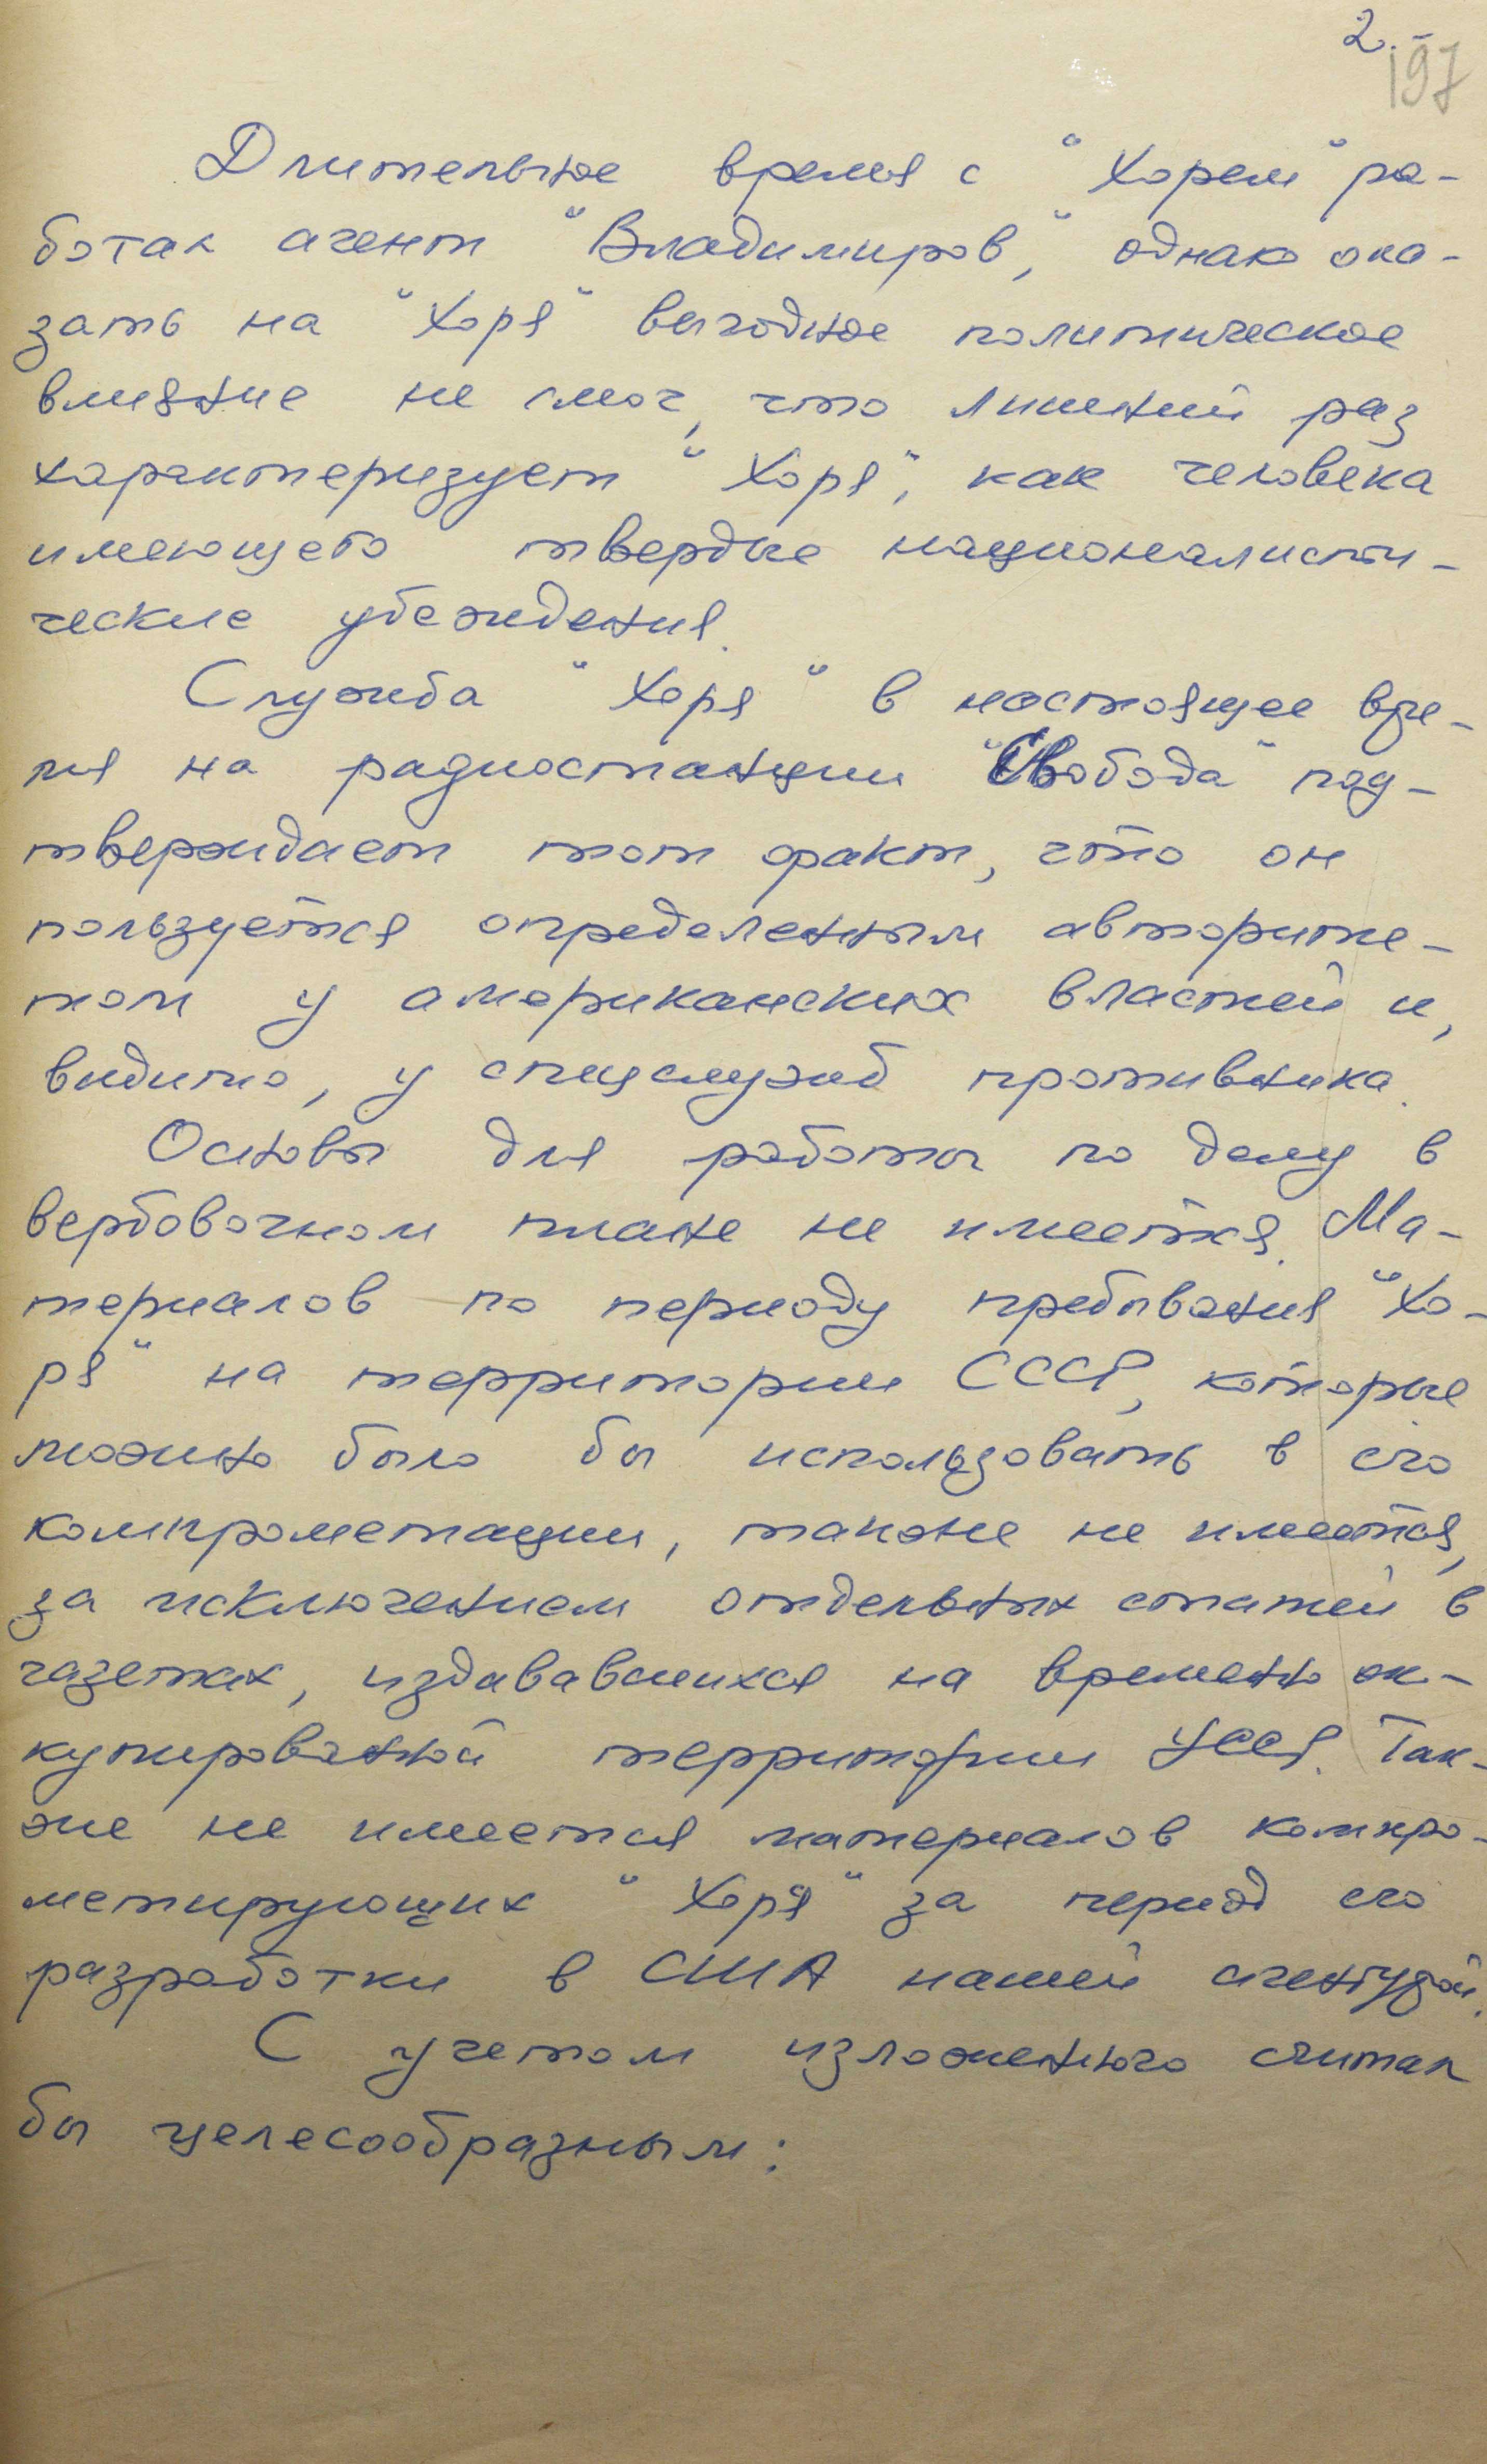 2.-
197
Длительное время с "Хорем" ра-
ботал агент "Владимиров", однако ока-
зать на "Хоря" выгодное политическое
влияние не смог, что лишний раз
характеризует "Хоря", как человека
имеющего твердые националисти-
ческие убеждения.
Служба "Хоря" в настоящее вре-
мя на радиостанции "Свобода" под-
тверждает тот факт, что он
пользуется определенным авторите-
том у американских властей и,
видимо, у спецслужб противника.
Основы для работы по делу в
вербовочном плане не имеется. Ма-
териалов по периоду пребывания "Хо-
ря" на территории СССР, которые
можно было бы использовать в его
компрометации, также не имеется,
за исключением отдельных статей в
газетах, издававшихся на временно ок-
купированной территории УССР. Так-
же не имеется материалов компро-
метирующих "Хоря" за период его
разработки в США нашей агентурой.
С учетом изложенного считал
бы целесообразным: